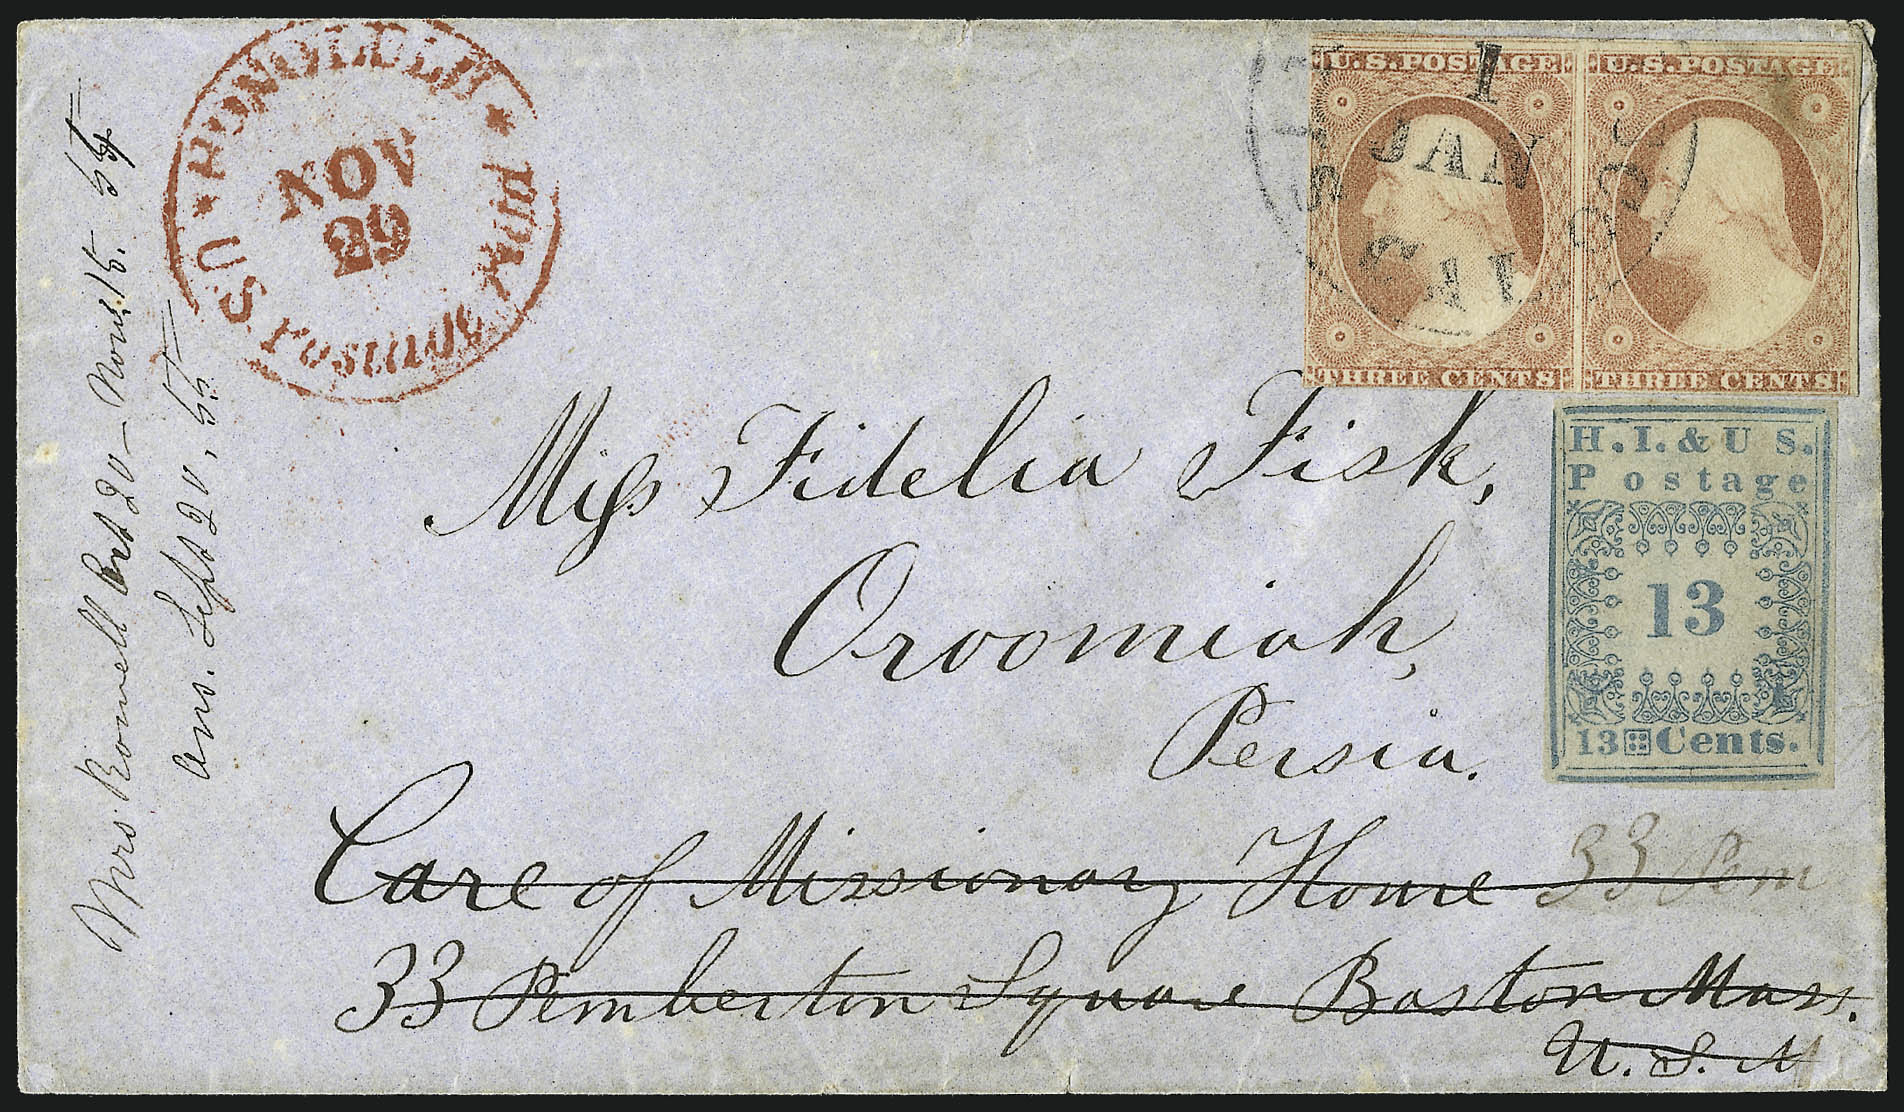 HONOLULU * U.S. Postage Paid *
NOV
29
1
JAN
U.S. POSTAGE
THREE CENTS
U.S. POSTAGE
THREE CENTS
H.I. & U.S.
Postage
13
13 Cents.
Miss Fidelia Fisk,
Oroomiah,
Persia.
Care of Missionary Home 33 Pem
33 Pemberton Square Boston Mass.
U. S.
Mrs Romell 20 - Nov. 15. 54
Ans. Sept 20, 55